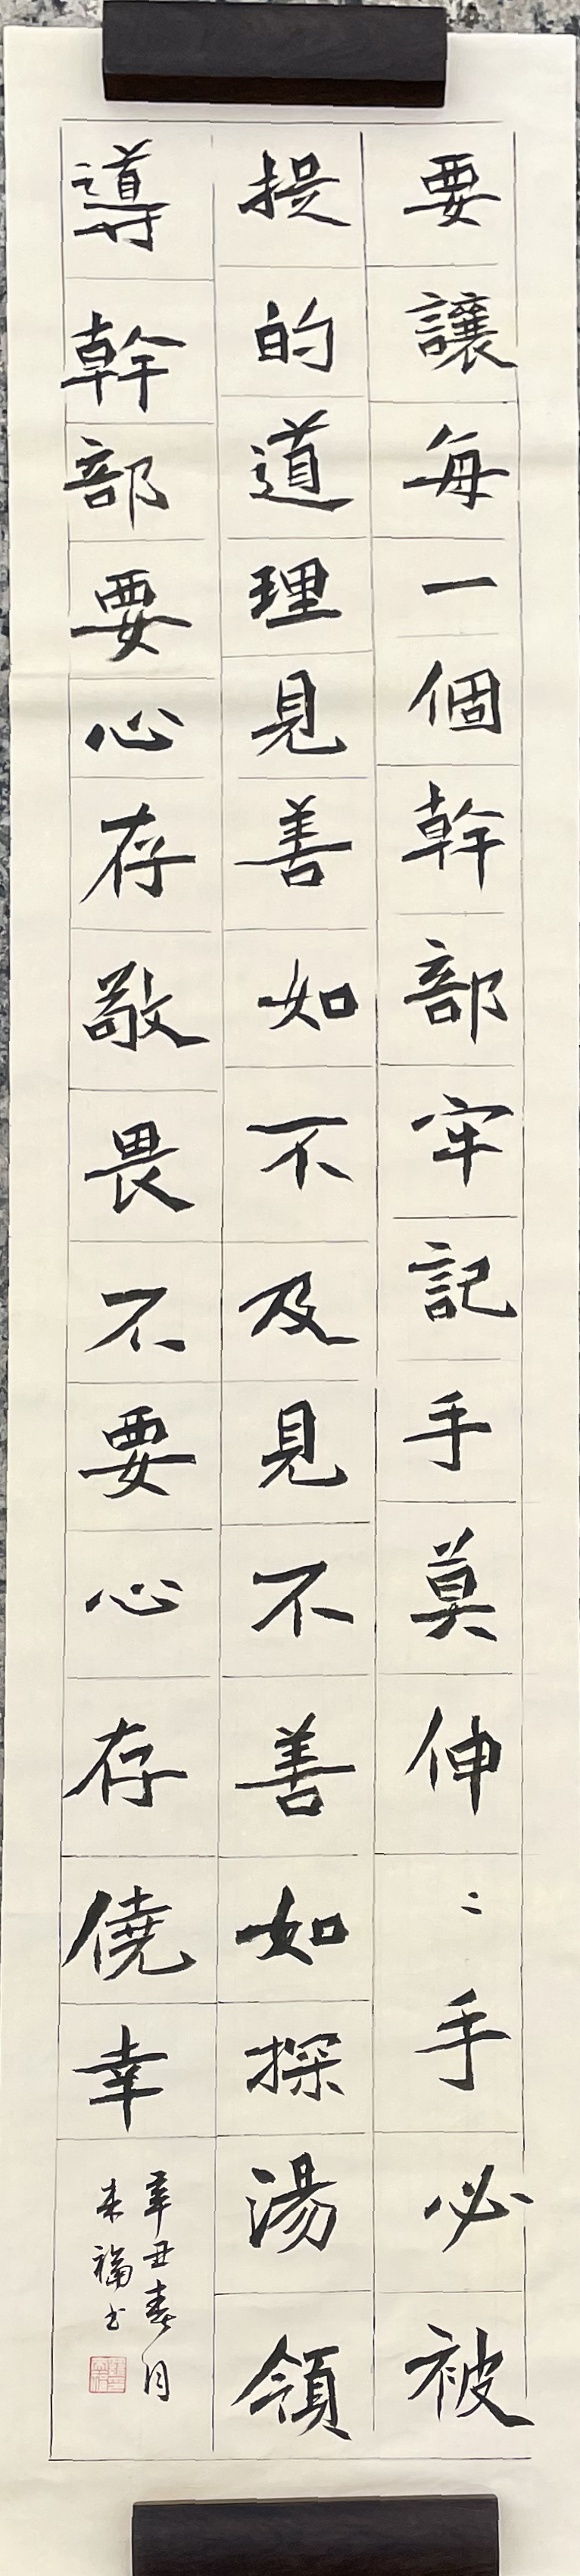 要讓每一個幹部牢記手莫伸〻手必被
捉的道理見善如不及見不善如探湯領
導幹部要心存敬畏不要心存僥幸
辛丑春月
来福书